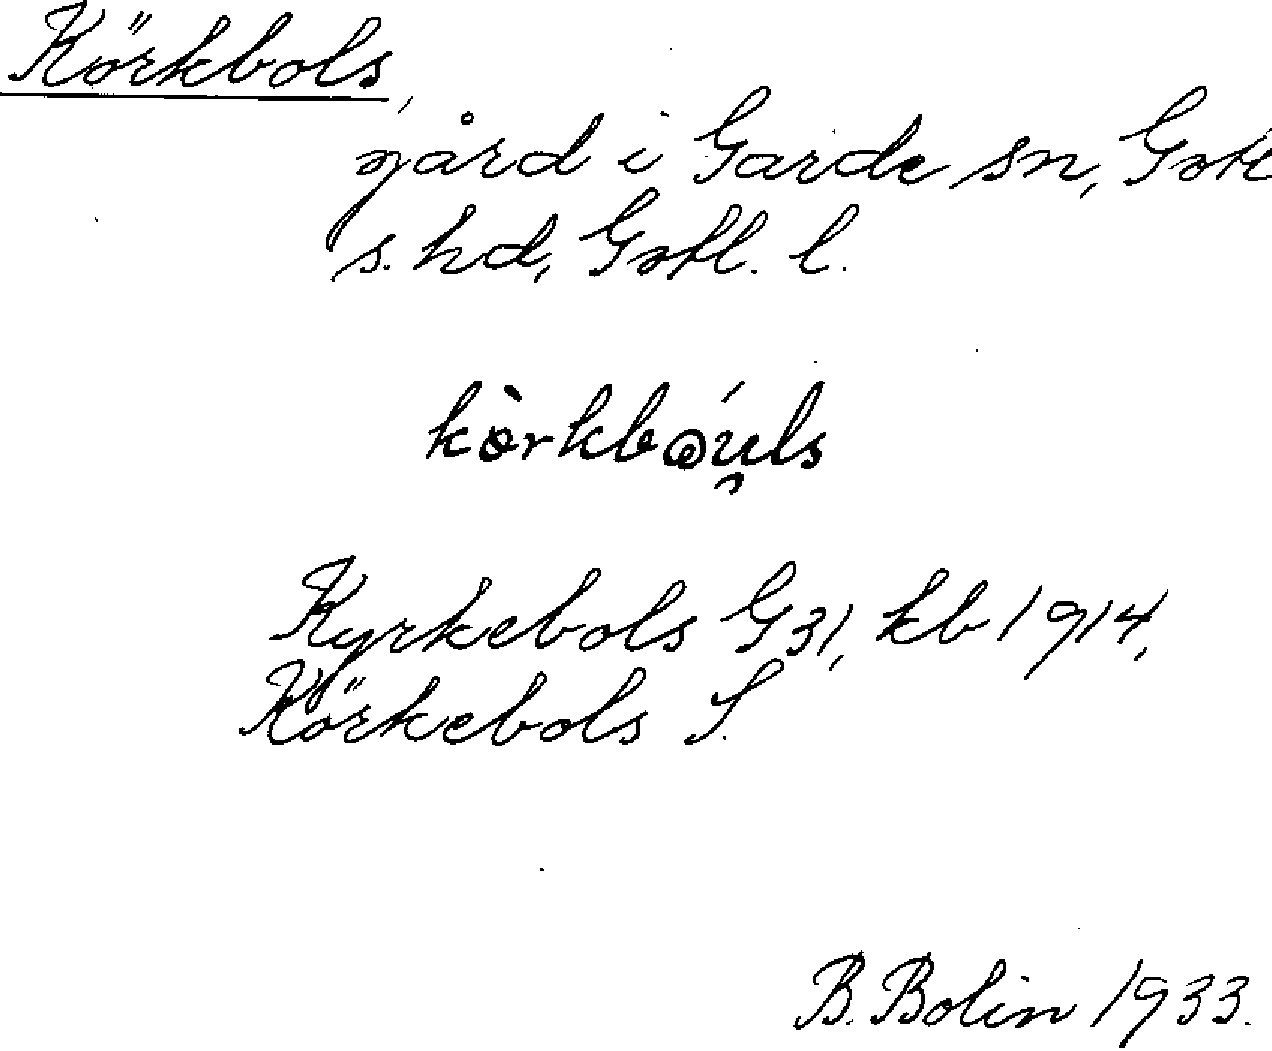 Körkbols,
gård i Garde sn, Gotl
s. hd, Gotl. l.
Kyrkebols G31, kb 1914,
Körkebols S.
B. Bolin 1933.